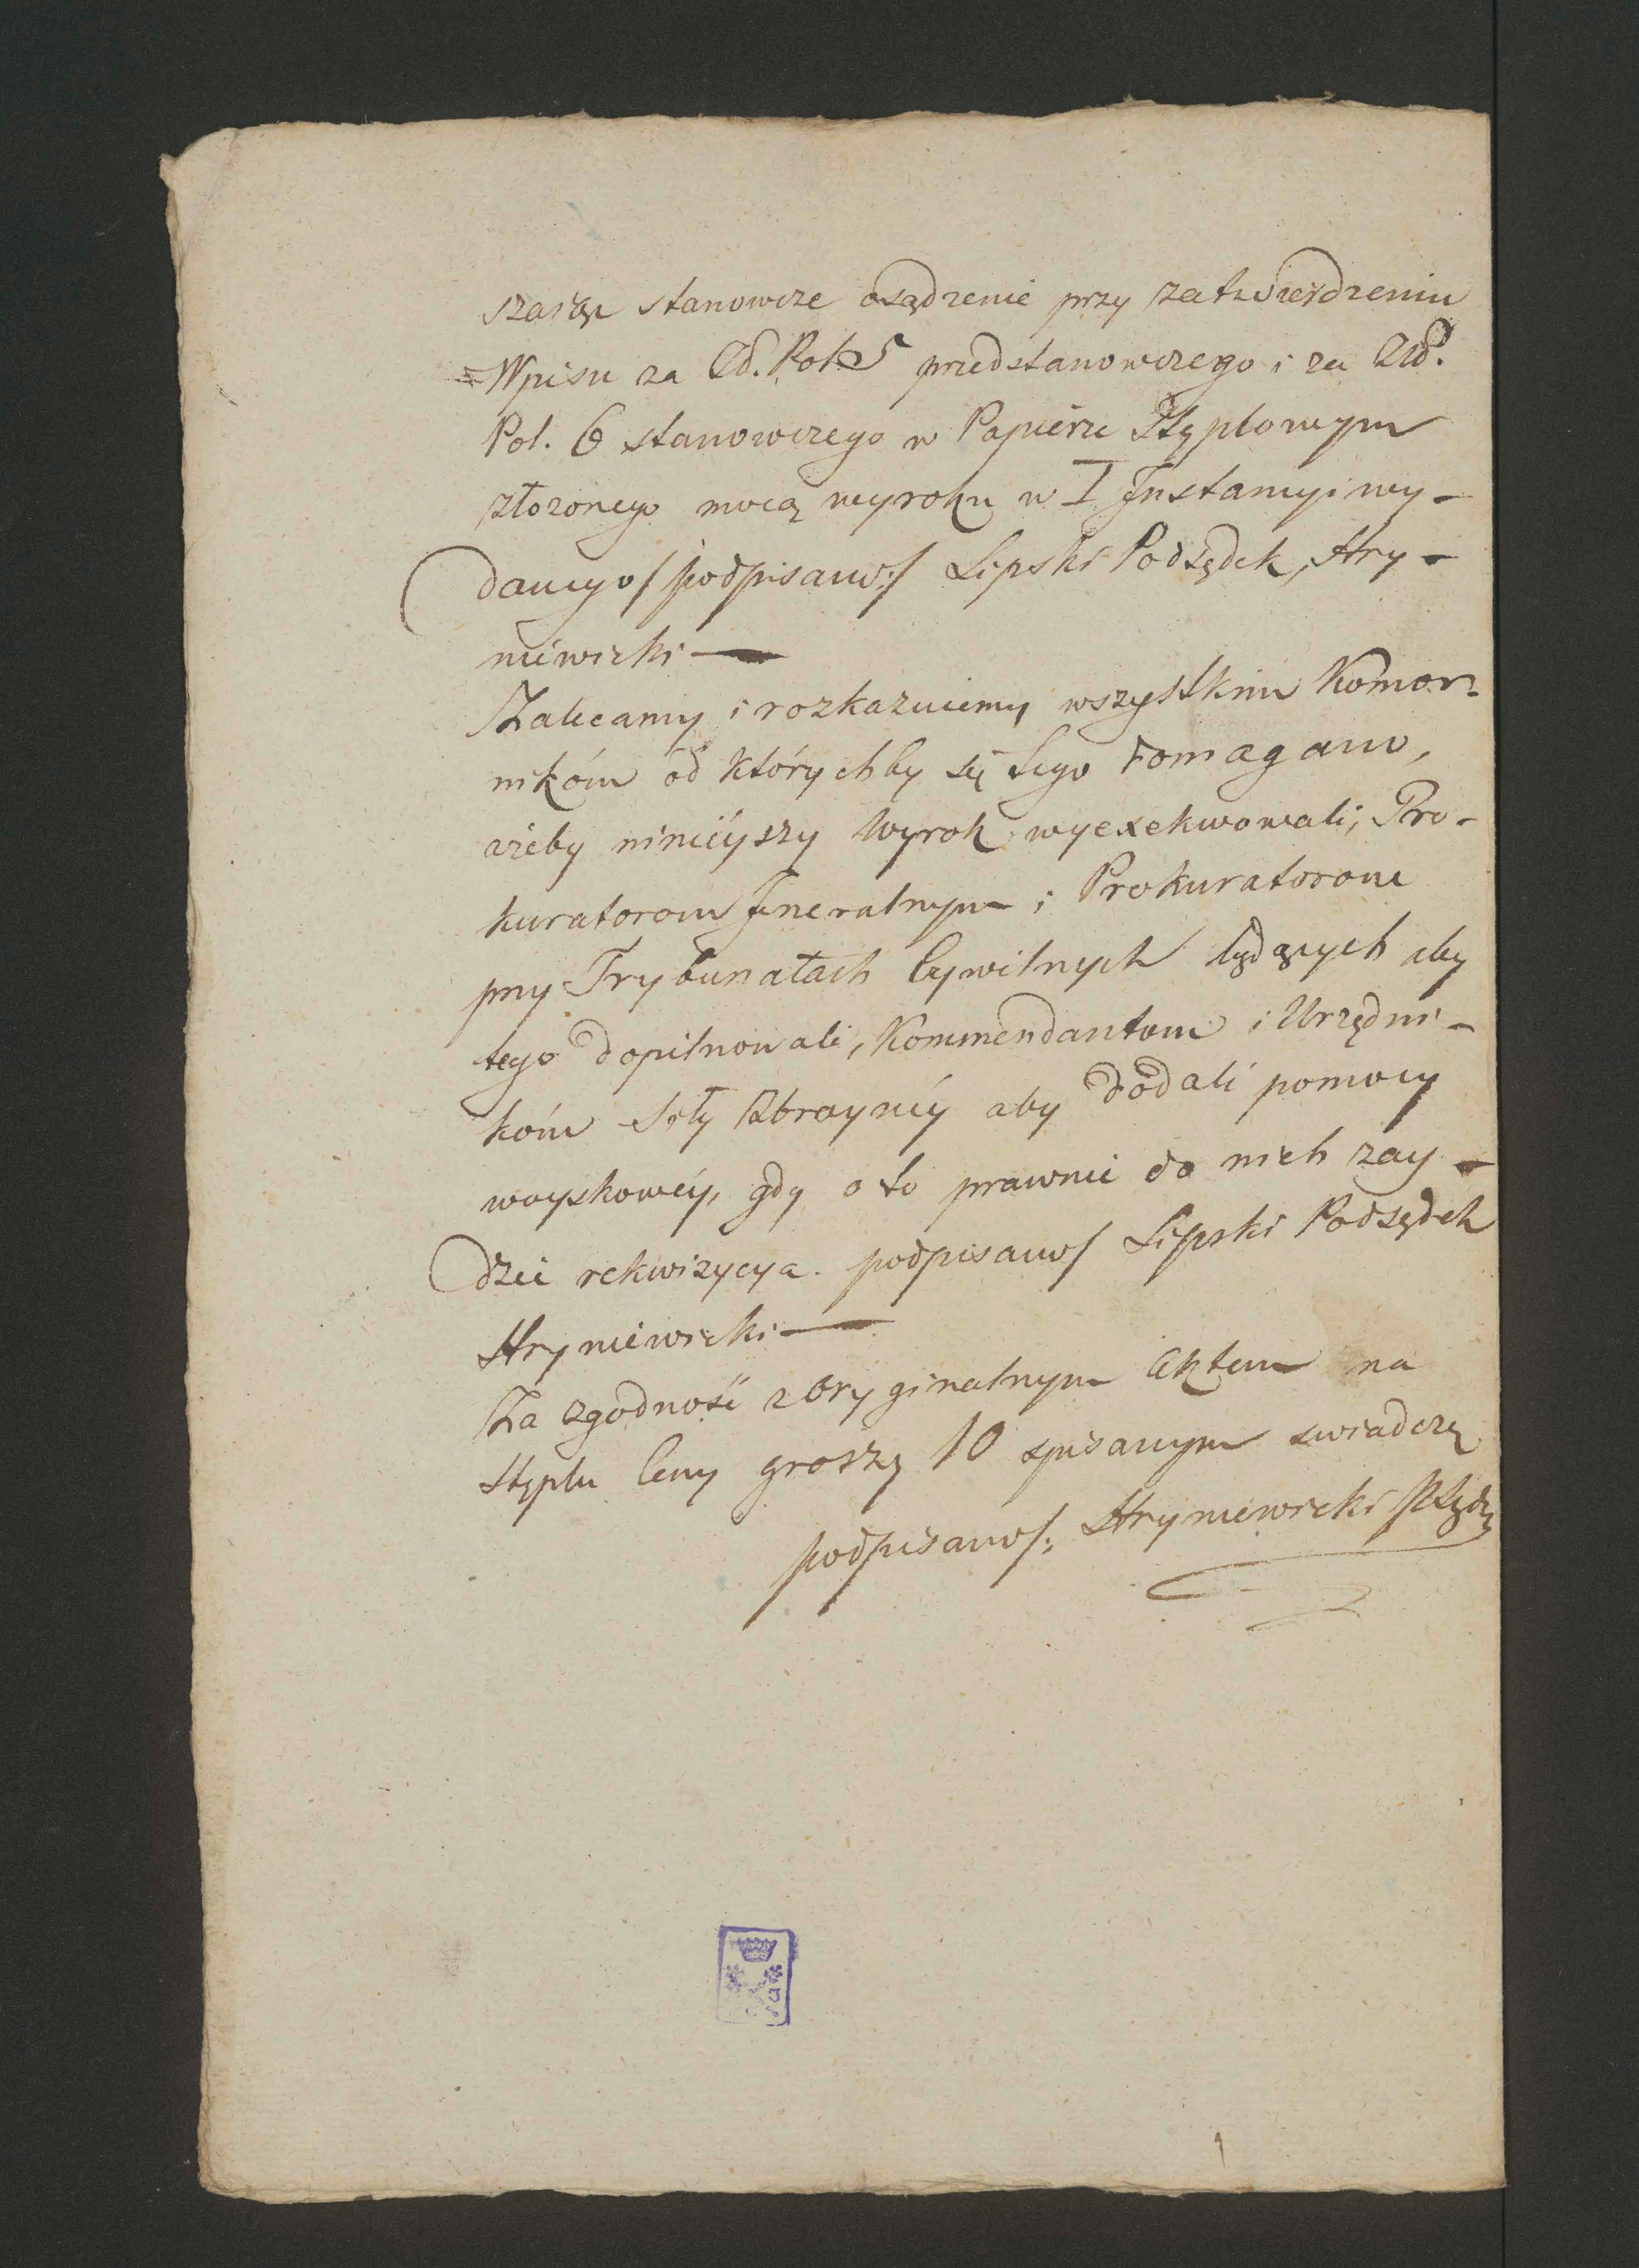 szasza stanowcze osądzenie przy zatwierdzeniu
Wpisu za Zł. Pol. 5 przedstanowczego i za Zł.
Pol. 6 stanowczego w Papierze Stęplowym
złożonego mocą wyroku w I Instancyi wy-
danego / podpisano / Lipski Podsędek, Hry-
niewicki
Zalecamy i rozkazuiemy wszystkim Komor-
nikóm od którychby się tego domagano,
ażeby ninieyszy Wyrok wyexekwowali, Pro-
kuratorom Jneralnym i Prokuratorom
przy Trybunałach Cywilnych będących aby
tego dopilnowali, Kommendantom i Urzędni-
kóm Siły Zbroynéy aby dodali pomocy
woyskowéy, gdy o to prawnie do nich zay-
dzie rekwizycya. podpisano / Lipski Podsędek
Hryniewicki
Za zgodność z Oryginalnym Aktem na
Stęplu Ceny groszy 10 spisanym swiadczę
podpisano /: Hryniewicki PSądu